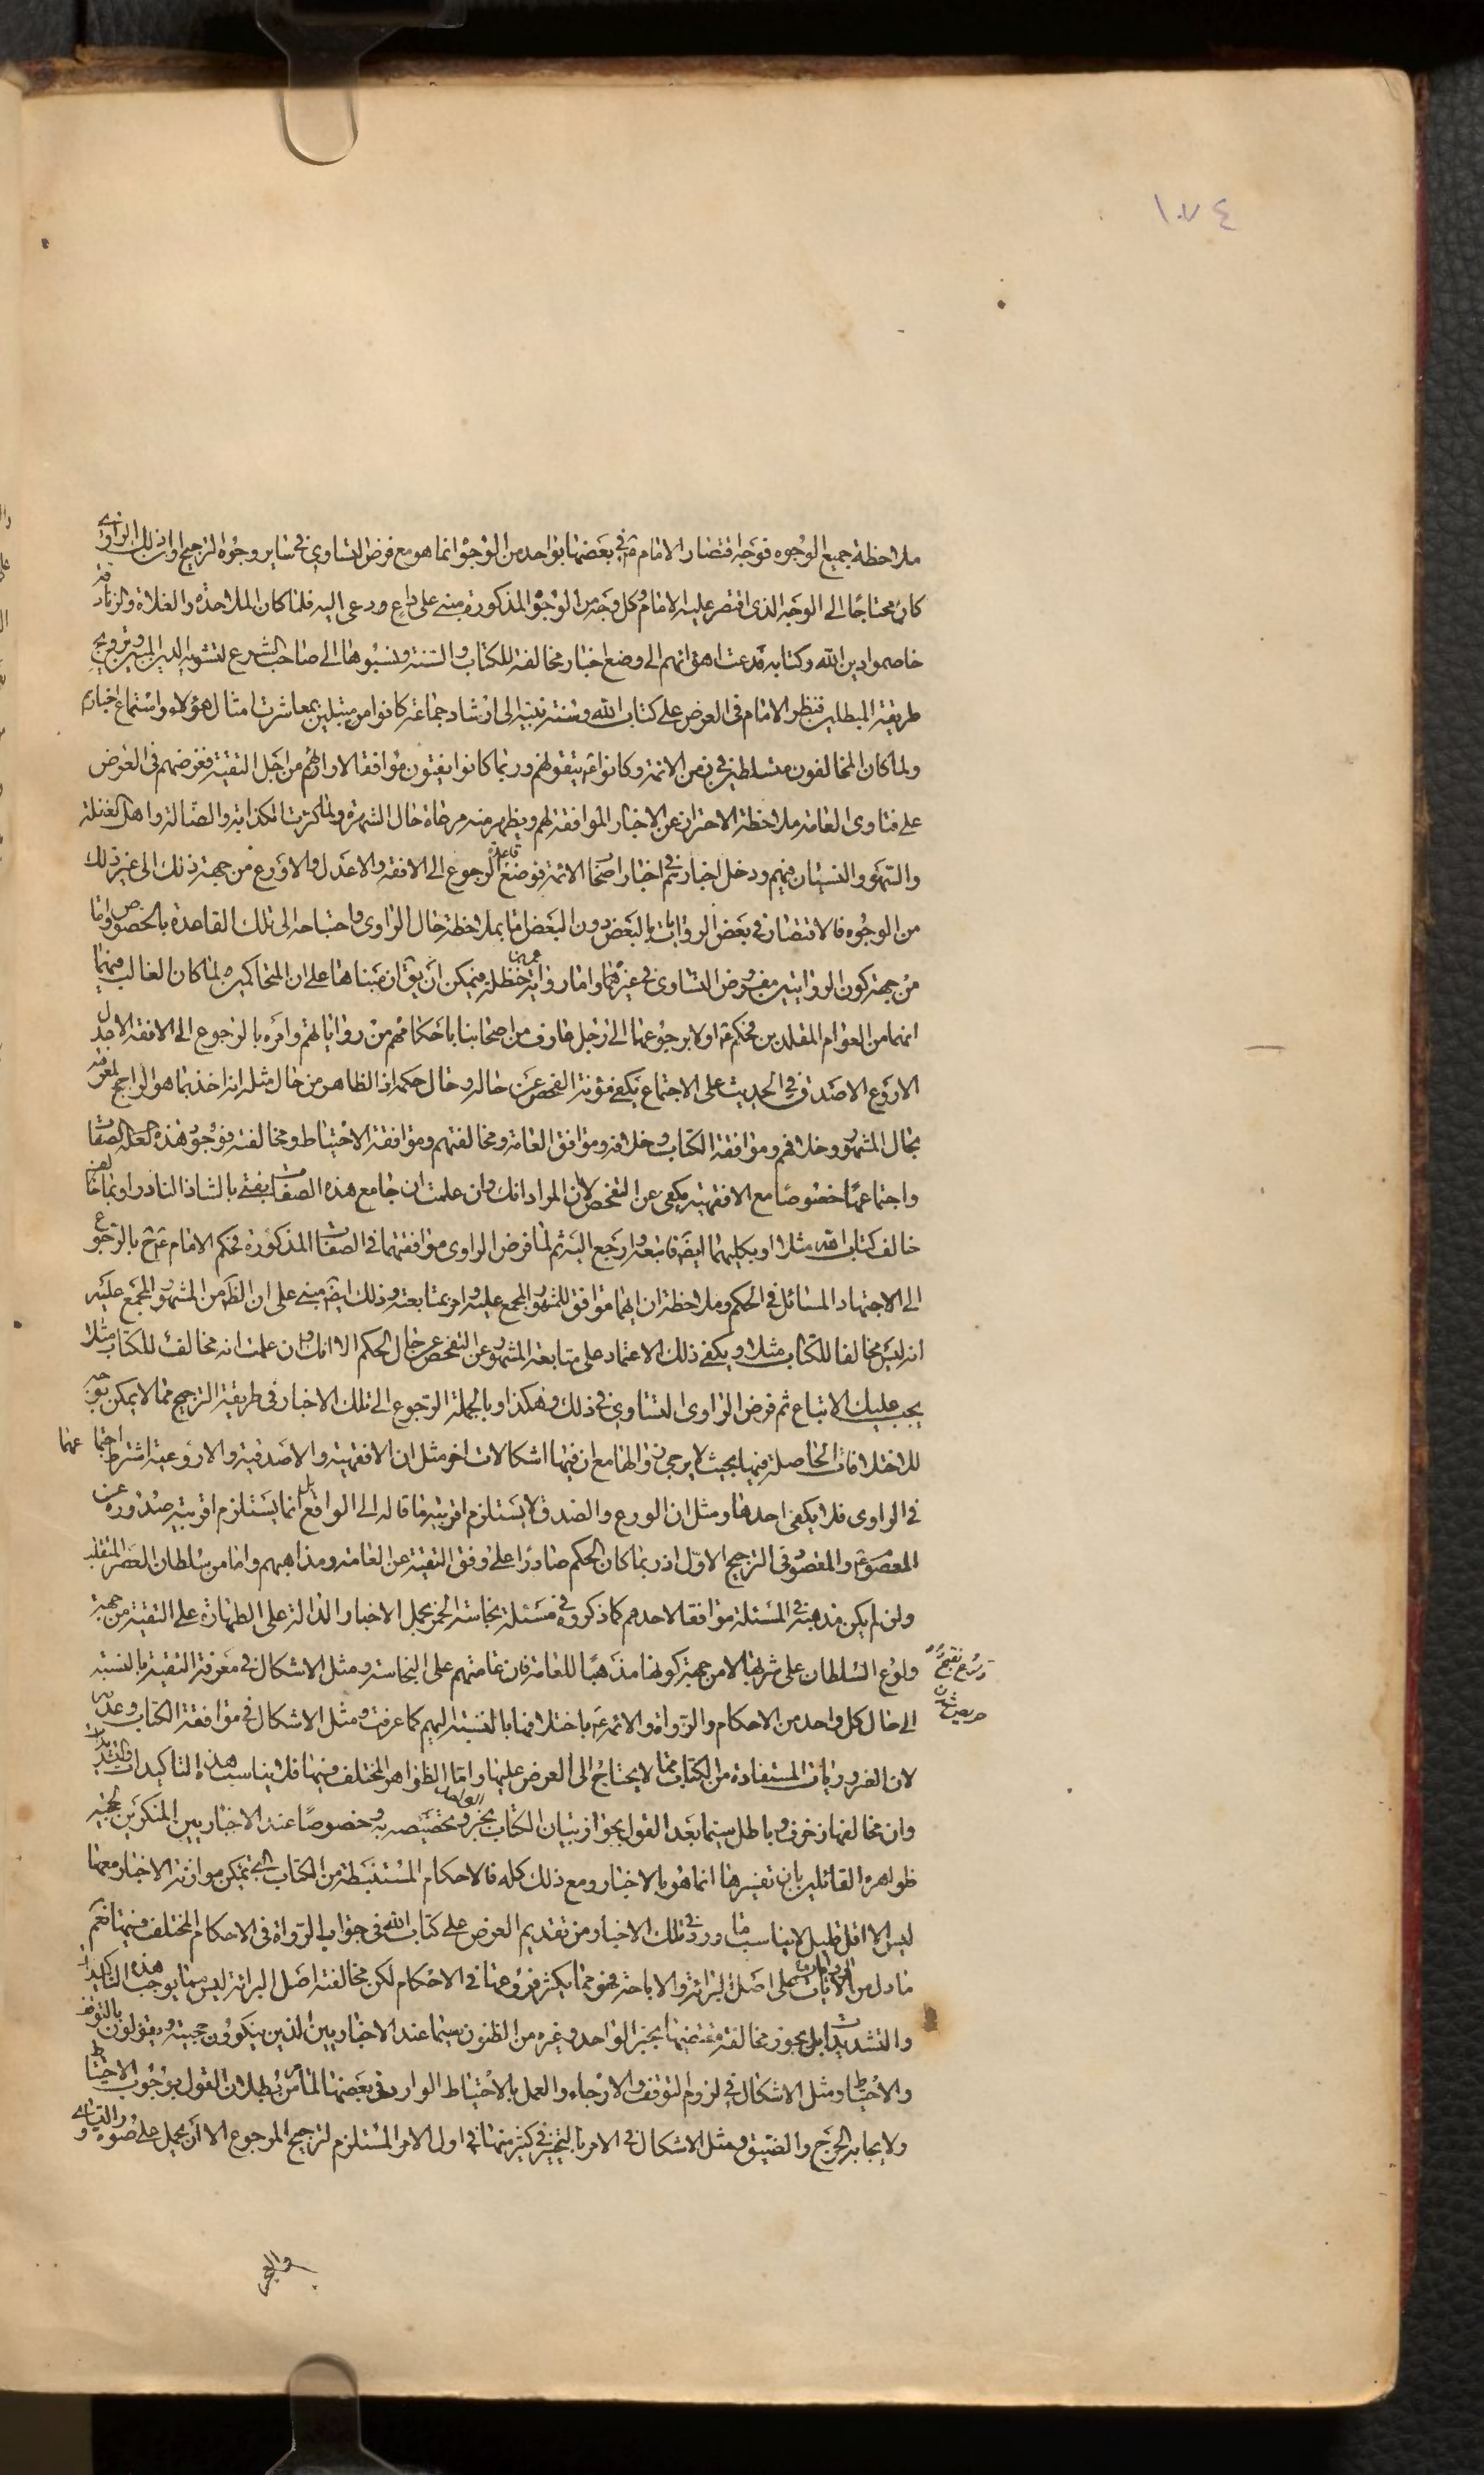 ١٠٧٤
ملاحظة جميع الوجوه فوجه اقتصار الامام ع في بعضها بواحد من الوجوه انما هو مع فرض التساوي في ساير وجوه الترجيح او ان ذلك الراوي
كان محتاجا الى الوجه الذي اقتصر عليه الامام ع وكل وجه من الوجوه المذكورة مبني على داع ودعى اليه فلما كان الملاحدة والغلاة والزنادقة
خاصموا دين الله وكتابه قد دعت اهوائهم الى وضع اخبار مخالفة للكتاب والسنة ونسبوها الى صاحب الشرع لتشويه الدين المبين وترويج
طريقة المبطلين فنظر الامام في العرض على كتاب الله وسنة نبيه الى ارشاد جماعة كانوا من مبتلين بمعاشرت امثال هؤلاء واستماع اخبارهم
ولما كان المخالفون متسلطين في زمن الائمة وكانوا ع يتقونهم وربما كانوا يفتون موافقا لاراؤهم من اجل التقية فغرضهم في العرض
على فتاوى العامة ملاحظة الاحتراز عن الاخبار الموافقة لهم ويظهر منه مراعاة حال الشهرة ولما كثرت الكذابة والضالة واهل الغفلة
والسهو والنسيان فيهم ودخل اخبارهم في اخبار اصحاب الائمة فوضع قاعدة الرجوع الى الافقه والاعدل والاورع من جهة ذلك الى غير ذلك
من الوجوه فالاقتصار في بعض الروايات بالبعض دون البعض اما بملاحظة حال الراوي واحتياجه الى تلك القاعدة بالخصوص واما
من جهة كون الروايتين مفروض التساوي في غيرهما واما رواية عمر بن حنظلة فيمكن ان يق ان مبناها على ان المتحاكمين لما كان الغالب فيهما
انهما من العوام المقلدين فحكم ع اولا برجوعهما الى رجل عارف من اصحابنا باحكامهم من رواياتهم وامره بالرجوع الى الافقه الاعدل
الاورع الاصدق في الحديث على الاجتماع يكفي مؤنة الفحص عن حاله وحال حكمه اذ الظاهر من حال مثله انه اخذ بما هو الراجح لمعرفته
بحال المشهور وخلافهم وموافقة الكتاب وخلافه وموافق العامة ومخالفتهم وموافقة الاحتياط ومخالفته فوجود هذه العلل الصفات
واجتماعها خصوصا مع الافقهية يكفي عن التفحص لان المراد انك وان علمت ان جامع هذه الصفات يفتي بالشاذ النادر او بما خالف
خالف كتاب الله مثلا او بكليهما ايضا فاتبعه وارجع اليه ثم لما فرض الراوي موافقتهما في الصفات المذكورة فحكم الامام ع ح بالرجوع
الى الاجتهاد المسائل في الحكم وملاحظة ان ايهما موافق للمشهور المجمع عليه وامر بمتابعته وذلك ايضا مبني على ان الظ من المشهور المجمع عليه
انه ليس مخالفا للكتاب مثلا ويكفي ذلك الاعتماد على متابعة المشهور عن التفحص عن حال الحكم لا انك وان علمت انه مخالف للكتاب مثلا
يجب عليك الاتباع ثم فرض الراوي التساوي في ذلك وهكذا وبالجملة الرجوع الى تلك الاخبار في طريقة الترجيح مما لا يمكن توجيه
للاختلافات الحاصلة فيها بحيث لا يرجى زوالها مع ان فيها اشكالات اخر مثل ان الافقهية والاصدقية والاورعية اشترط اجتماعها
في الراوي فلا يكفي احدها ومثل ان الورع والصدق لا يستلزم اقربية ما قاله الى الواقع بل انما يستلزم اقربية صدوره عن
المعصوم ع والمقصود في الترجيح الاول اذ ربما كان الحكم صادرا على وفق التقية عن العامة ومذاهبهم واما من سلطان العصر المتقلب
ولو لم يكن مذهبه في المسئلة موافقا لاحدهم كما ذكروه في مسئلة نجاسة الخمر بحمل الاخبار الدالة على الطهارة على التقية من جهة
ولوع السلطان على شربها لا من جهة كونها مذهبا للعامة فان عامتهم على النجاسة ومثل الاشكال في معرفة التقية بالنسبة
الى حال كل واحد من الاحكام والرواة والائمة ع باختلافها بالنسبة اليهم كما عرفت ومثل الاشكال في موافقة الكتاب وعدمه
لان الضروريات المستفادة من الكتاب مما لا يحتاج الى العرض عليها واما الظواهر المختلف فيها فلا يناسب هذه التاكيدات والتشديدات
وان مخالفها زخرف وباطل سيما بعد القول بجواز بيان الكتاب بخبر الواحد وتخصيصه به وخصوصا عند الاخباريين المنكرين لحجية
ظواهره القائلين بان تفسيرها انما هو بالاخبار ومع ذلك كله فالاحكام المستنبطة من الكتاب التي يمكن موازنة الاخبار معها
ليس الا اقل قليل لا يناسب ما ورد في تلك الاخبار من تقديم العرض على كتاب الله في جواب الرواة في الاحكام المختلف فيها نعم
ما دل من الآيات على اصل البرائة والاباحة فهو مما يكثر فروعها في الاحكام لكن مخالفة اصل البرائة ليس مما يوجب هذه التاكيدات
والتشديدات بل يجوز مخالفة مقتضيها بخبر الواحد وغيره من الظنون سيما عند الاخباريين الذين ينكرون حجيته ويقولون بالتوقف
والاحتياط ومثل الاشكال في لزوم التوقف والارجاء والعمل بالاحتياط الوارد في بعضها لما مر من بطلان القول بوجوب الاحتياط
ولايجابه الحرج والضيق ومثل الاشكال في الامر بالتخيير في كثير منها في اول الامر المستلزم لترجيح المرجوح الا ان يحمل على صورة التساوي و
والعجز